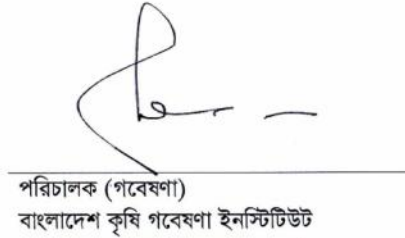 পরিচালক (গবেষণা)
বাংলাদেশ কৃষি গবেষণা ইনস্টিটিউট